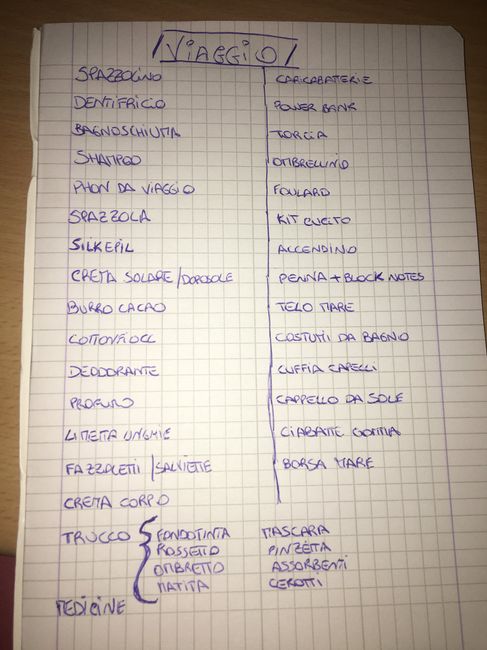 VIAGGIO
SPAZZOLINO
DENTIFRICIO
BAGNOSCHIUMA
SHAMPOO
PHON DA VIAGGIO
SPAZZOLA
SILKEPIL
CREMA SOLARE/DOPOSOLE
BURRO CACAO
COTTONFIOCC
DEODORANTE
PROFUMO
LIMETTA UNGHIE
FAZZOLETTI/SALVIETTE
CREMA CORPO
CARICABATTERIE
POWER BANK
TORCIA
OMBRELLINO
FOULARD
KIT CUCITO
ACCENDINO
PENNA + BLOCK NOTES
TELO MARE
COSTUMI DA BAGNO
CUFFIA CAPELLI
CAPPELLO DA SOLE
CIABATTE GOMMA
BORSA MARE
TRUCCO { FONDOTINTA MASCARA
ROSSETTO PINZETTA
OMBRETTO ASSORBENTI
MATITA CEROTTI
MEDICINE